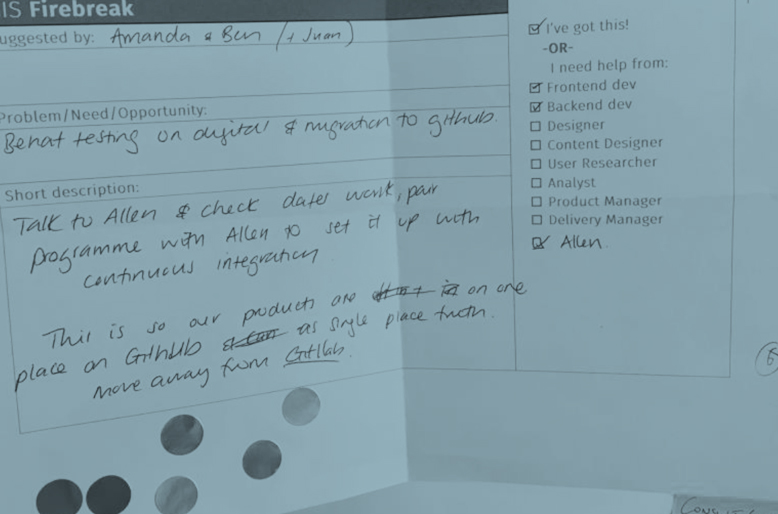 IS Firebreak
uggested by: Amanda & Ben (+ Juan)
Problem/Need/Opportunity:
Behat testing on digital & migration to github.
Short description:
Talk to Allen & check dates work, pair
programme with Allen to set it up with
continuous integration
This is so our products are on one
place on GitHub as single place truth.
Move away from GitLab.
I've got this!
-OR-
I need help from:
Frontend dev
Backend dev
Designer
Content Designer
User Researcher
Analyst
Product Manager
Delivery Manager
Allen.